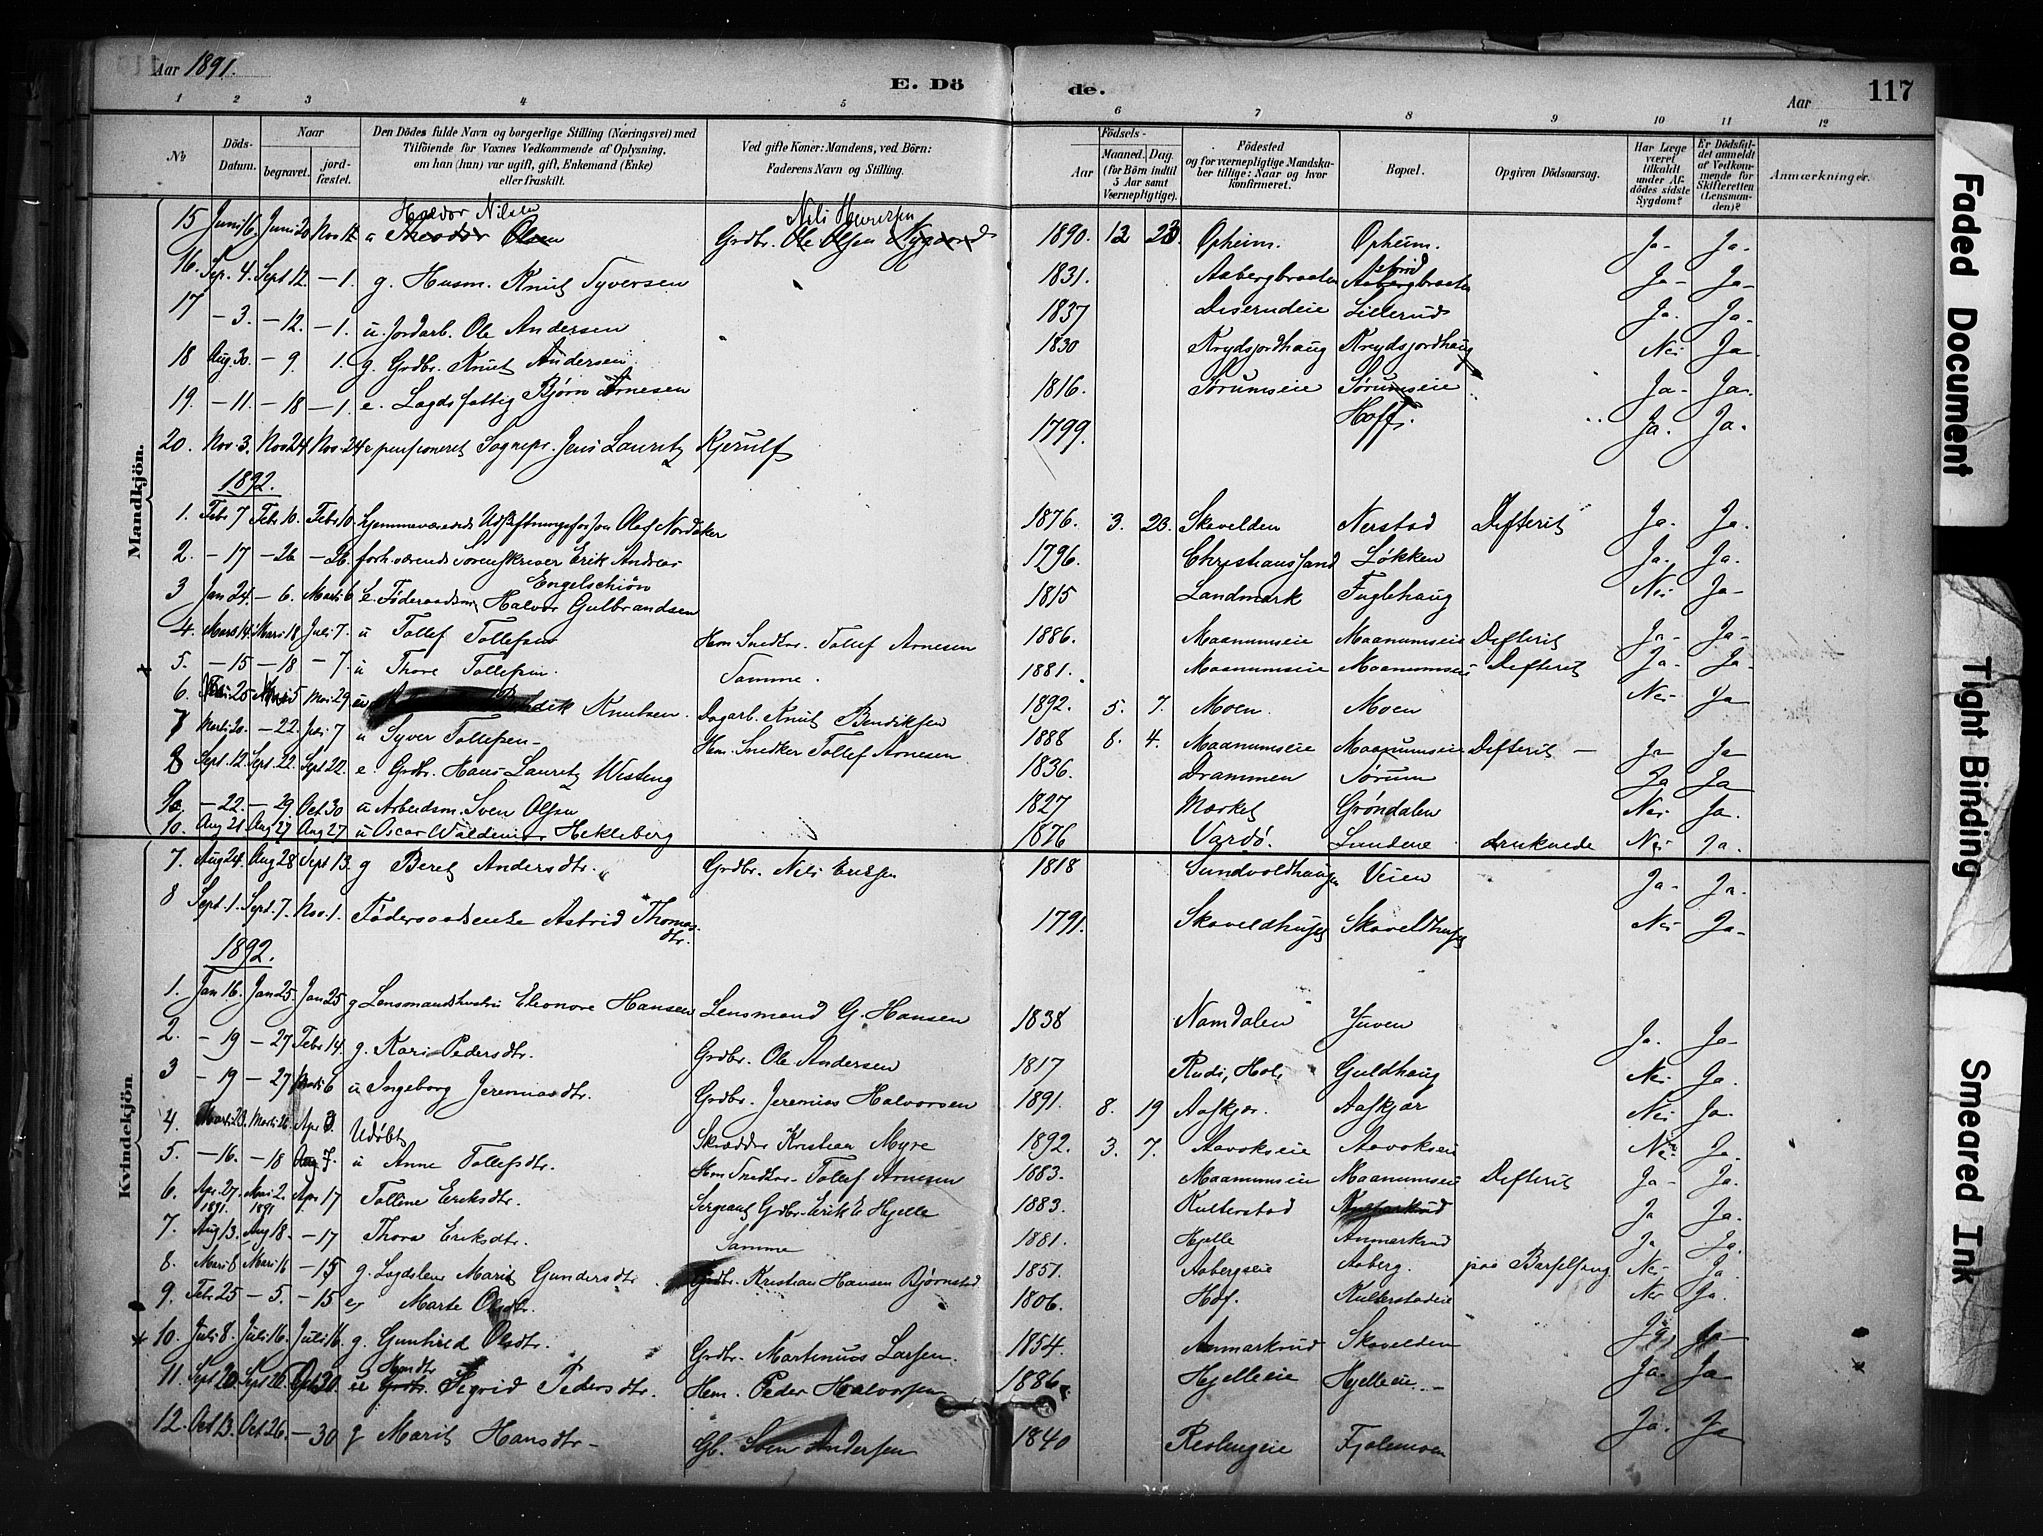 Aar 1891.
E. Döde.
Aar
117
1 2 3 4 5 6 7 8 9 10 11 12
No
Döds-Datum.
Naar
begravet.
jord-fæstet.
Den Dödes fulde Navn og borgerlige Stilling (Næringsvei) med
Tilföiende for Voxnes Vedkommende af Oplysning,
om han (hun) var ugift, gift, Enkemand (Enke)
eller fraskilt.
Ved gifte Koner: Mandens, ved Börn:
Faderens Navn og Stilling.
Födsels-
Aar
Maaned. Dag.
(for Börn indtil
5 Aar samt
Værnepligtige).
Födested
og for værnepligtige Mandska-
ber tillige: Naar og hvor
konfirmeret.
Bopæl.
Opgiven Dödsaarsag.
Har Læge
været
tilkaldt
under Af-
dödes sidste
Sygdom?
Er Dödsfal-
det anmeldt
af Vedkom-
mende for
Skifteretten
(Lensman-
den)?
Anmærkninger.
Mandkjön.
Halvor Nilsen Nils
15 Juni 16. Juni 20 Nov 12 u Theodor Olsen Grdbr. Ole Olsen Nygaard 1890. 12 23. Opheim. Opheim. Ja- Ja-
16. Sep. 4. Sept 12. — 1. g. Husm. Knut Syversen 1831. Aabergbraaten Aabergbraaten Ja- Ja-
17 — 3. — 12. — 1. u. Jordarb. Ole Andersen 1837 Diserudeie Lillerud Ja. Ja.
18 Aug 30. — 9 1. g. Grdbr. Knut Andersen 1830 Krydsjordhaug Krydsjordhaug Nei Ja
19. — 11. — 18 — 1. e. Lagdsfattig Bjørn Arnesen 1816. Sørumseie Sørumseie Ja- Ja.
20. Nov. 3. Nov 24 Nov. 24 e pensioneret Sognepr. Jens Lauretz Kjerulf 1799. Hoff. Ja. Ja.
1892.
1. Febr 7 Febr 10. Febr 10 hjemmeværende Olaf Nordaker 1876. 3. 23. Skavelden Nerstad Difterit Ja. Ja.
2. — 17 — 26 — 26. forh.værende Sorenskriver Erik Andreas Engelschiøn 1796. Christianssand Løkken Ja. Ja.
3 Jan 24. — 6. Marts 6 e. Føderaadsm. Halvor Gulbrandsen 1815 Landmark Fuglehaug Nei Ja-
4. Marts 14. Marts 18 Juli 7. u Tollef Tollefsen Hm Snedker. Tollef Arnesen 1886. Maanumseie Maanumseie Difterit Ja- Ja-
5. — 15 — 18 — 7. u Thore Tollefsen. Samme. 1881. Maanumseie Maanumseie Difterit Ja- Ja-
6. Knutsen. Dagarb. Knut Bendiksen 1892. 5. 7. Moen. Moen Nei- Ja
7 Marts 20. — 22. 7 u Syver Tollefsen- Hm. Snedker Tollef Arnesen 1888 8. 4. Maanumseie Maanumseie Difterit — Ja Ja
8 Sept. 12. Sept. 22. Sept 22. e. Grdbr. Hans Lauretz Wisteng 1836. Drammen Sørum Ja Ja
9. — 22. — 29 Oct 30 u Arbeidsm. Sven Olsen 1827 Market Grøndalen Nei Ja.
10. Aug 21 Aug 27 Aug 27 u Oscar Waldemar Hekleberg 1876 Vardö. Lundene druknede Nei Ja.
Kvindekjön
7. Aug 24. Aug 28 Sept 13. g Beret Andersdtr. Grdbr. Nils Eriksen 1818 Sundvoldhaugen Veien Ja- Ja.
8 Sept. 1. Sept. 7. Nov. 1. Føderaadsenke Astrid Thomasdtr. 1791. Skaveldhuset Skaveldhuset Nei Ja-
1892.
1. Jan 16. Jan 25. Jan 25 g Lensmandshustru Eleonore Hansen Lensmand G. Hansen 1838 Namdalen Juven Ja. Ja
2. — 19 — 27 Febr 14. g. Kari Pedersdtr. Grdbr. Ole Andersen 1817 Rudi, Hol, Guldhaug Nei Ja.
3 — 19 — 27 Marts 6 u Ingeborg Jeremiasdtr. Grdbr. Jeremias Halvorsen 1891. 8. 19 Aaskjær. Aaskjær Nei Ja.
4. Marts 23. Marts 26 Apr 3. Udøbt Skrædder Kristian Myre 1892. 3. 7. Aavokseie Aavokseie Nei Ja.
5. — 16. — 18 7. u Anne Tollefsdtr. Hm Snedker. Tollef Arnesen 1883. Maanumseie Maanumseie Difterit Ja- Ja.
6. Apr. 27. 1891. Mai 2. 1891 Apr 17 Talline Eriksdtr. Sergeant Grdbr. Erik E Hjelle 1883. Kulterstad Ja Ja.
7. Aug 13. Aug 18. — 17 Thora Eriksdtr. Samme 1881. Hjelle Anmarkrud Ja Ja.
8. Marts 8 Marts 16 — 15 g. Lagdslem Marit Gundersdtr Grdbr. Kristian Hansen Bjørnstad 1851. Aabergseie Aaberg. paa Barselseng Nei- Ja.
9. Febr. 25 — 5. — 15 e, Marte Olsdtr. 1806. Hof. Kulterstadeie Nei Ja.
10. Juli 8. Juli 16. Juli 16. g. Gunhild Olsdtr. Grdbr. Martinius Larsen. 1854. Anmarkrud Skavelden Ja Ja
11. Sept 20. Sept 26. Oct 30. u Sigrid Pedersdtr. Hem. Peder Halvorsen 1886. Hjelleeie Hjelleeie. Ja- Ja-
12. Oct 13. Oct 26. — 30 g Marit Hansdtr- Gb. Sven Andersen 1840 Fjeldmoen Ja. Ja
Faded Document
Tight Binding
Smeared Ink